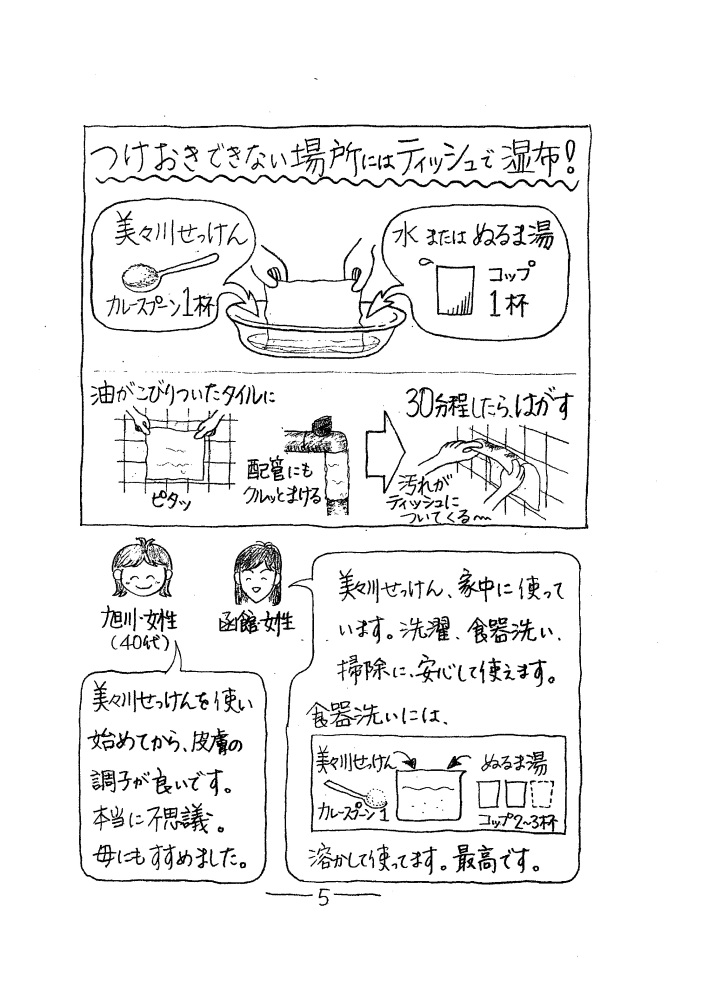 つけおきできない場所にはティッシュで湿布!
美々川せっけん
カレースプーン1杯
水またはぬるま湯
コップ
1杯
油がこびりついたタイルに
ピタッ
配管にも
クルッとまける
30分程したら、はがす
汚れが
ティッシュに
ついてくる〜
旭川・女性
(40代)
函館・女性
美々川せっけんを使い
始めてから、皮膚の
調子が良いです。
本当に不思議。
母にもすすめました。
美々川せっけん、家中に使って
います。洗濯、食器洗い、
掃除に、安心して使えます。
食器洗いには、
美々川せっけん
カレースプーン1
ぬるま湯
コップ2~3杯
溶かして使ってます。最高です。
5